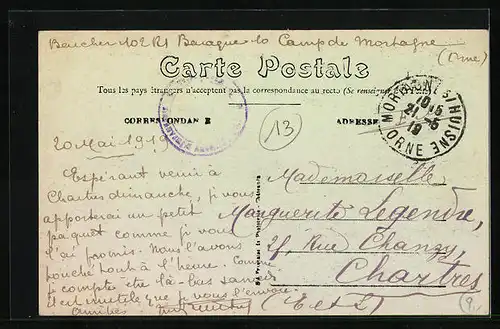 Boucher 102 RI Baraque 10 Camp de Mortagne
(Orne)
Carte Postale
Tous les pays étrangers n'acceptent pas la correspondance au recto (Se renseigner
CORRESPONDANCE
ADRESSE
13
10-15
21-5
19
ORNE
20 Mai 1919
Espérant venir à
Chartres dimanche, je vous
apporterai un petit
paquet comme je vous
l'ai promis. Nous l'avons
touché tout à l'heure. Comme
je compte être là-bas samedi
il est inutile que je vous l'envoie.
Amitiés
Mademoiselle
Marguerite Legendre,
Rue Chanzy
Chartres
(E et L)